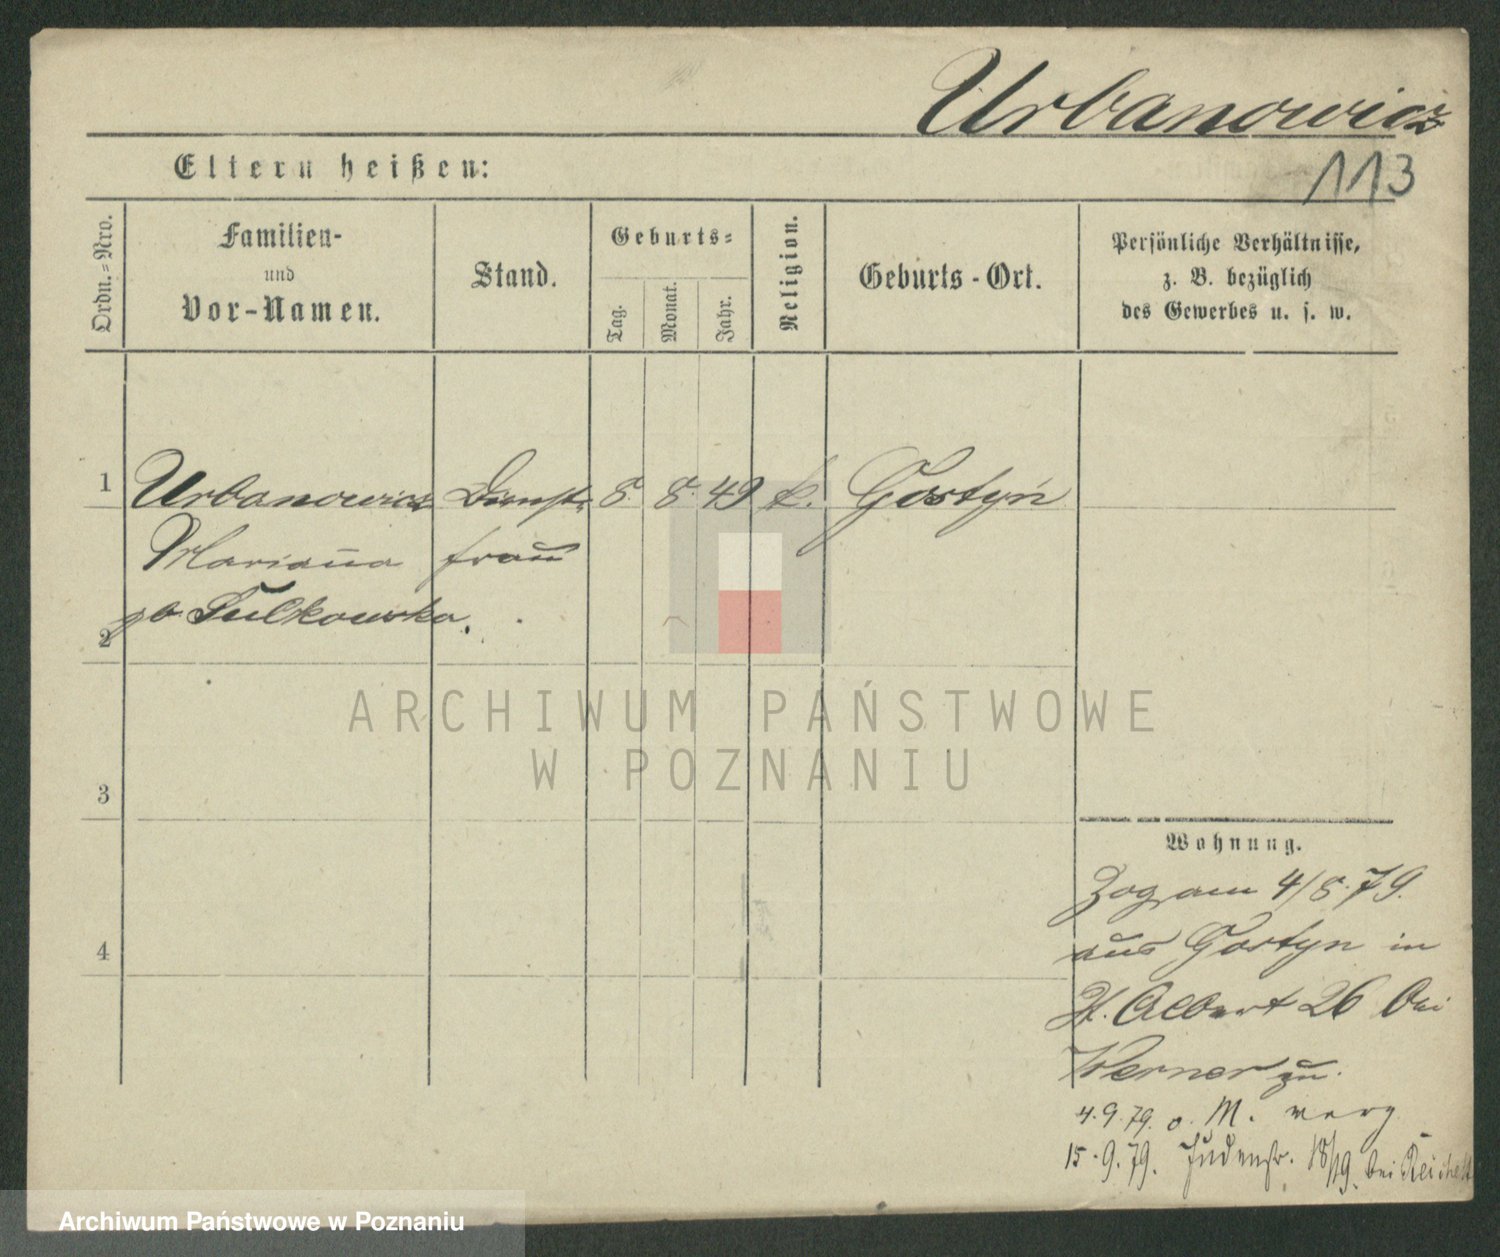 Urbanowicz
113
Eltern heißen:
Ordn.=Nro.
Familien-
und
Vor-Namen.
Stand.
Geburts=
Tag.
Monat.
Jahr.
Religion.
Geburts-Ort.
Persönliche Verhältnisse,
z. B. bezüglich
des Gewerbes u. s. w.
1 Urbanowicz Dienst- 8. 8. 49 k. Gostyń
Marianna frau
gb Sulkowska.
2
ARCHIWUM PAŃSTWOWE
W POZNANIU
3
4
Wohnung.
Zog am 4/8.79.
aus Gostyn in
H. Albert 26 bei
Werner zu.
4.9.79. o. M. verz
15.9.79. Judenstr. 18/19. bei
Archiwum Państwowe w Poznaniu